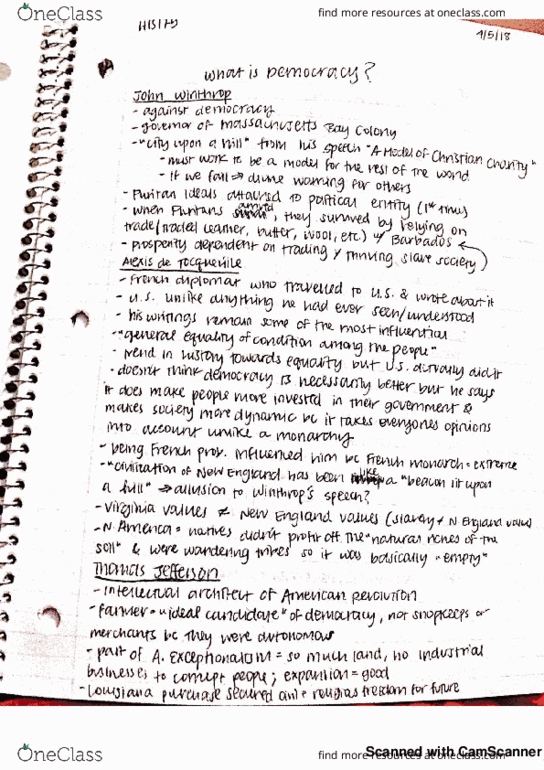 OneClass
find more resources at oneclass.com
HIS17B
4/5/18
What is Democracy?
John Winthrop
- against democracy
- governor of Massachusetts Bay Colony
- "city upon a hill" from his speech "A Model of Christian Charity"
- must work to be a model for the rest of the world
- if we fail ⇒ divine warning for others
- Puritan ideals attached to political entity (1st time)
- when Puritans arrived, they survived by relying on
trade (traded leather, butter, wool, etc.) w/ Barbados
- prosperity dependent on trading w/ thriving slave society)
Alexis de Tocqueville
- French diplomat who travelled to U.S. & wrote about it
- U.S. unlike anything he had ever seen/understood
- his writings remain some of the most influential
- "general equality of condition among the people"
- trend in history towards equality but U.S. actually did it
- doesn't think democracy is necessarily better but he says
it does make people more invested in their government &
makes society more dynamic bc it takes everyones opinions
into account unlike a monarchy
- being French prob. influenced him bc French monarch = extreme
- "civilization of New England has been like a "beacon lit upon
a hill" ⇒ allusion to Winthrop's speech?
- Virginia values ≠ New England values (slavery ≠ N England value)
- N America = natives didn't profit off the "natural riches of the
soil" & were wandering tribes so it was basically "empty"
Thomas Jefferson
- intellectual architect of American revolution
- farmer = "ideal candidate" of democracy, not shopkeeps or
merchants bc they were autonomous
- part of A. Exceptionalism = so much land, no industrial
businesses to corrupt people; expansion = good
- Louisiana purchase secured religious freedom for future
OneClass
find more resources at oneclass.com
Scanned with CamScanner